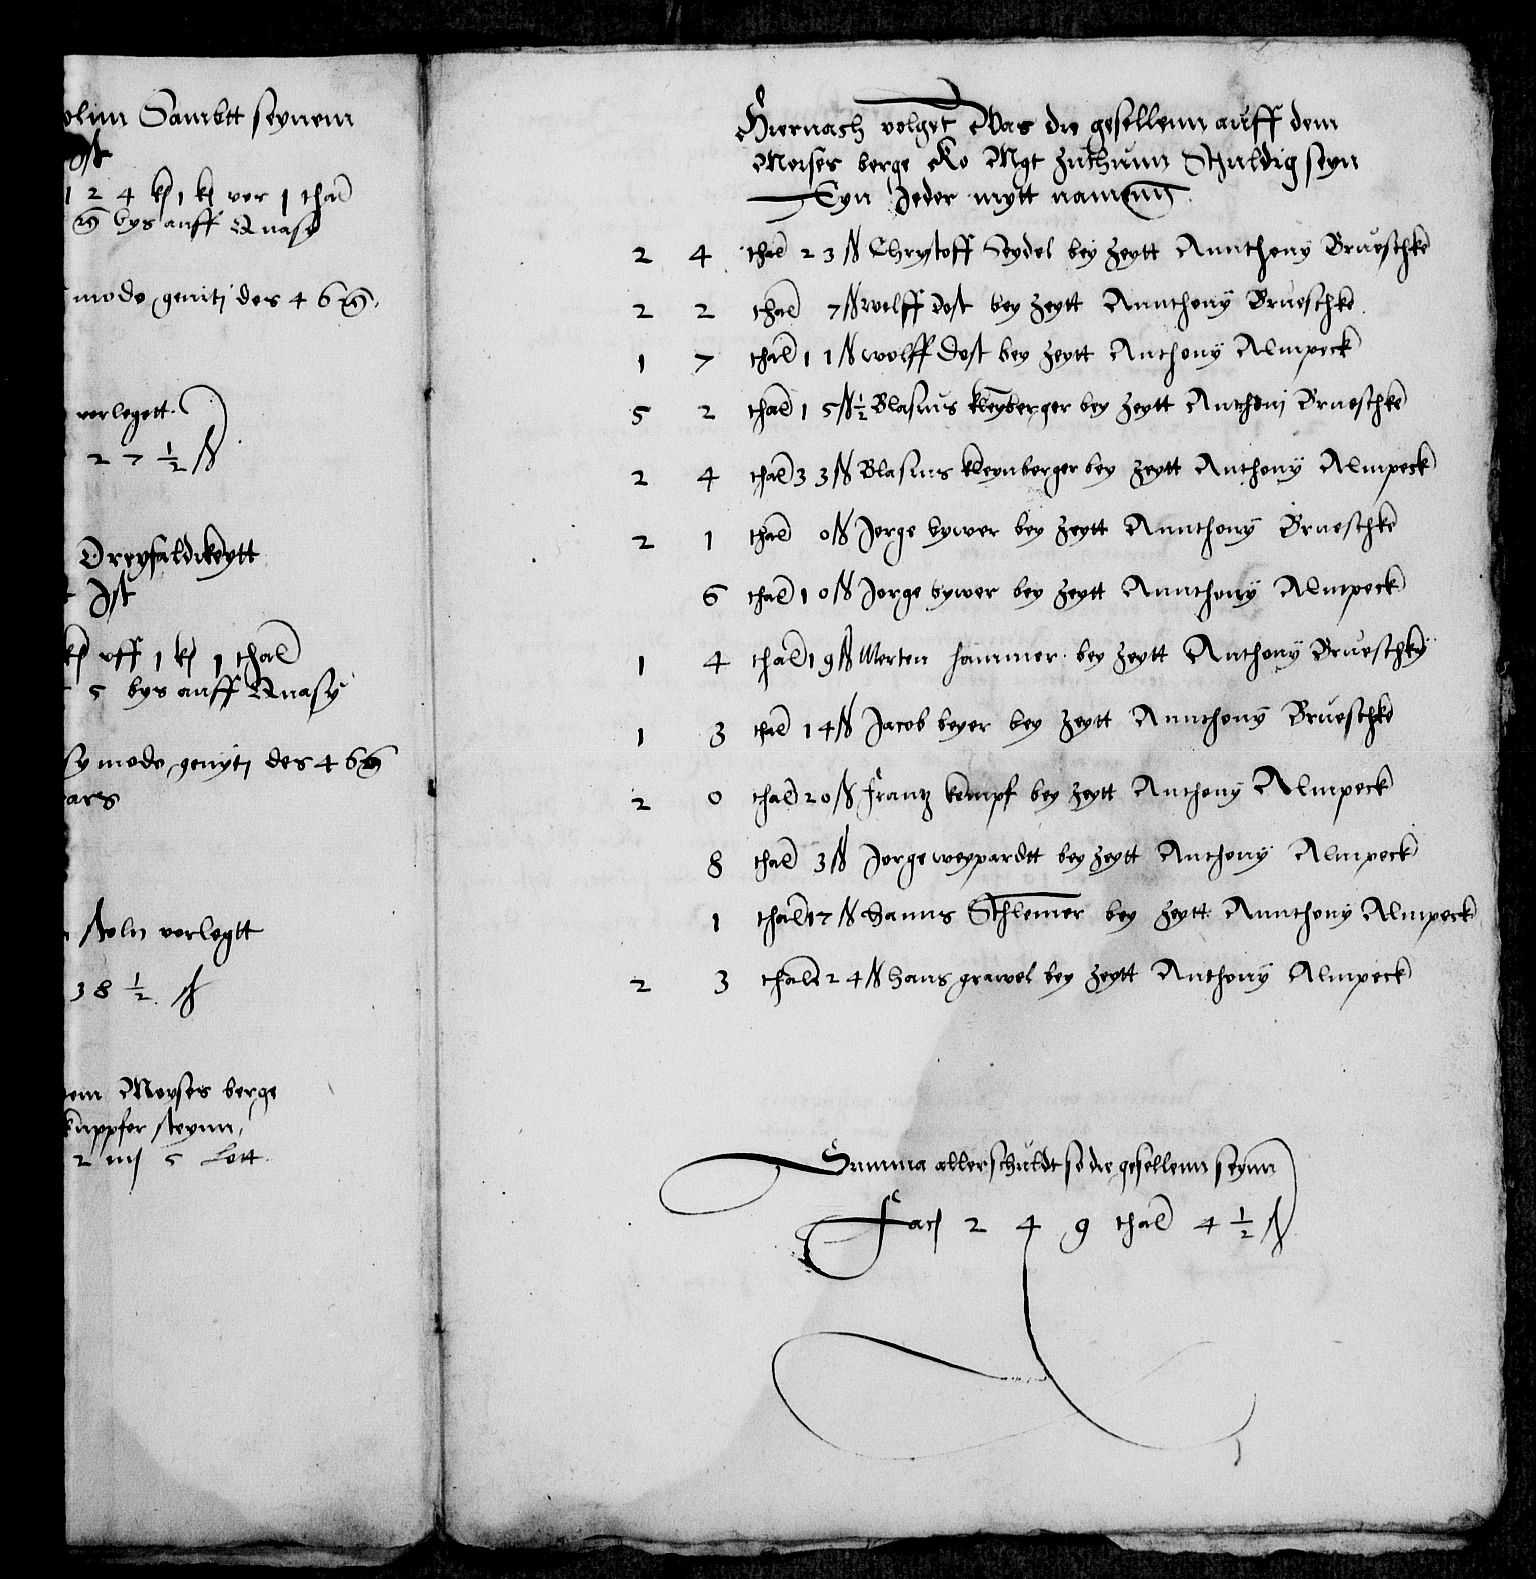 olim Sambtt seynem
ost
1 2 4 kß 1 kß vor 1 thal
bys auff Quasy
mode geniti des 4 6
verlegett
2 7 ½ ß
Dreyfaldikeytt
Ist
kß vff 1 kß 1 thal
5 bys auff Quasy
sy mode genyti des 4 6
ars
stoln verlegtt
3 8 ½ ß
dem Moyses berge
kuppfer steynn,
2 iiij 5 Lott
Hiernach volget Was die gesellenn auff dem
Moises berge Ko Mgt zuthunn Schuldig seyn
Eyn Jeder mytt namenn
2 4 thal 2 3 ß Chrystoff Seydel bey zeytt Annthony Brueschke
2 2 thal 7 ß wolff dost bey zeytt Annthony Brueschke
1 7 thal 1 1 ß wolff dost bey zeytt Anthony Almpeck
5 2 thal 1 5 ß ½ Blasius kleynberger bey zeytt Anthonj Brueschke
2 4 thal 3 3 ß Blasius kleynberger bey zeytt Anthony Almpeck
2 1 thal 0 ß Jorge bywer bey zeytt Annthony Brueschke
6 thal 1 0 ß Jorge bywer bey zeytt Annthony Almpeck
1 4 thal 1 9 ß Merten hammer bey zeytt Anthony Brueschky
1 3 thal 1 4 ß Jacob beyer bey zeytt Annthony Brueschke
2 0 thal 2 0 ß Frantz kempf bey zeytt Anthony Almpeck
8 thal 3 ß Jorge weyppardtt bey zeytt Anthony Almpeck
1 thal 1 7 ß Hanns Schlemer bey zeytt Annthony Almpeck
2 3 thal 2 4 ß Hans grawel bey zeytt Anthony Almpeck
Summa aller schuldt so die gesellenn seynn
Facj 2 4 9 thal 4 ½ ß